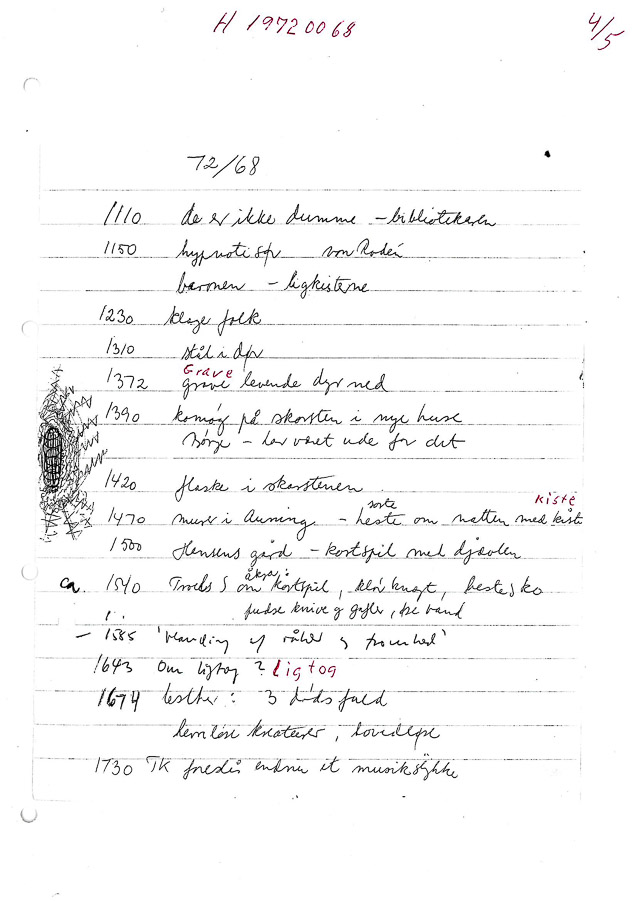 H 19720068
4/5
72/68
1110 de er ikke dumme - bibliotekaren
1150 hypnotisør von Rosén
baronen - ligkisterne
1230 kloge folk
1310 stål i dør
Grave
1372 grave levende dyr ned
1390 komøg på skorsten i nye huse
Børge - har været ude for det
1420 flaske i skorstenen
sorte kiste
1470 murer i Auning - heste om natten med kiste
1500 Hansens gård - kortspil med djævlen
ca. 1540 Troels S om kortspil, klør knægt, hestesko
pudse knive og gafler, vand
- 1585 'blanding af råhed og fromhed'
1643 Om ligtog ? ligtog
1674 Esther : 3 dødsfald
benløse kreaturer, hovedløse
1730 TK foreslår endnu et musikstykke